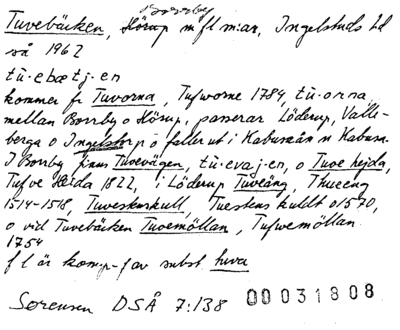 Borrby
Tuvebäcken, Hörup m fl m:ar, Ingelstads hd
så 1962
tù·ebætj·en
kommer fr Tuvorna, Tufworne 1784, tù·orna
mellan Borrby o Hörup, passerar Löderup, Valle-
berga o Ingelstorp o faller ut i Kabusaån n Kabusa.
I Borrby finns Tuvevägen, tù·evaj·en, o Tuve hejda,
Tufve Heida 1822, i Löderup Tuveäng, Thueeng
1514-1518, Tuveskurkull, Tuestens kuldt o1570,
o vid Tuvebäcken Tuvemöllan, Tufwemöllan
1754
f l är komp-f av subst tuva
Sörensen DSÅ 7:138 00031808